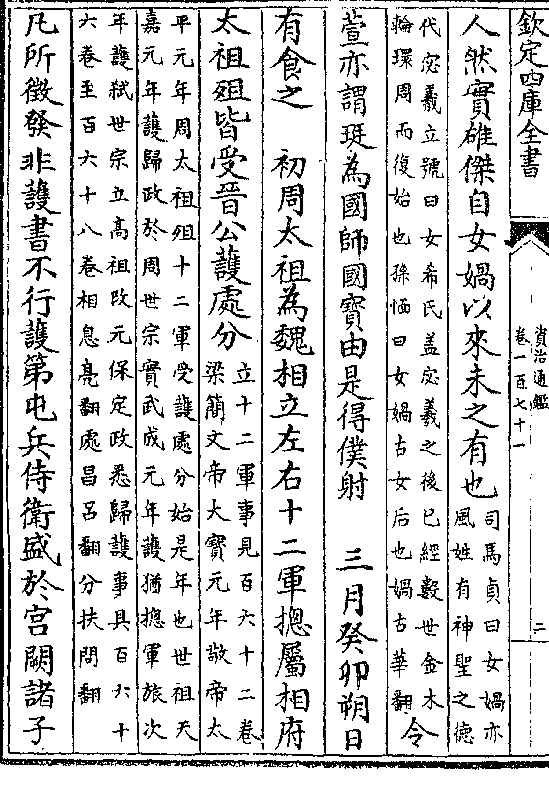 欽定四庫全書
資治通鑑
卷一百七十一
二
人然實雄傑自女媧以來未之有也
司馬貞曰女媧亦
風姓有神聖之德
代宓羲立號曰女希氏盖宓羲之後已經數世金木
輪環周而復始也孫恤曰女媧古女后也媧古華翻
令
萱亦謂珽為國師國寶由是得僕射　三月癸卯朔日
有食之　初周太祖為魏相立左右十二軍摠屬相府
太祖殂皆受晉公護處分
立十二軍事見百六十二卷
梁簡文帝大寶元年敬帝太
平元年周太祖殂十二軍受護處分始是年也世祖天
嘉元年護歸政於周世宗實武成元年護猶摠軍旅次
年護弑世宗立高祖改元保定政悉歸護事具百六十
六卷至百六十八卷相息亮翻處昌呂翻分扶問翻
凡所徵發非護書不行護第屯兵侍衛盛於宫闕諸子